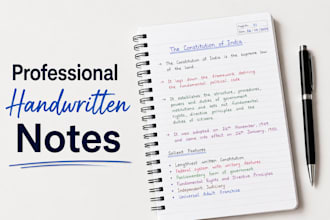 Professional
Handwritten
Notes
The Constitution of India
The Constitution of India is the supreme law
of the land.
It lays down the framework defining
the fundamental political code,
It establishes the structure, procedures,
powers and duties of government
institutions and sets out fundamental
rights, directive principles and the
duties of citizens.
It was adopted on 26th November, 1949
and came into effect on 26th January, 1950.
Salient Features
Lengthiest written constitution
Federal system with unitary features
Parliamentary form of government
Fundamental Rights and Directive Principles
Independent Judiciary
Universal Adult Franchise